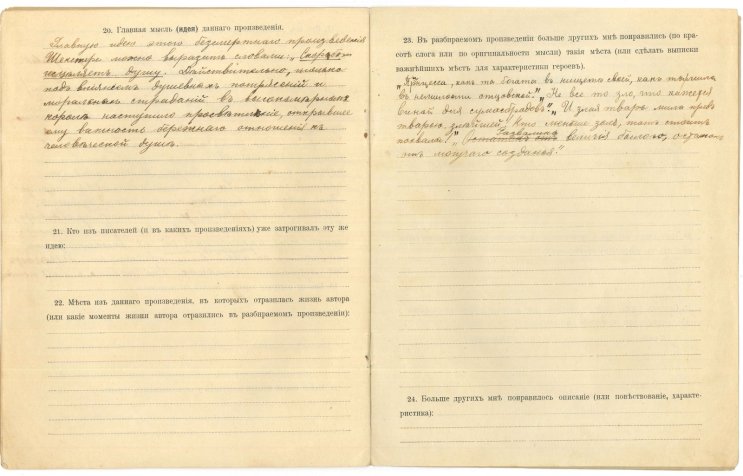 20. Главная мысль (идея) даннаго произведенія.
Главную идею этого безсмертнаго произведенія
Шекспира можно выразить словами: „Скорбь
исцѣляетъ душу. Дѣйствительно, только
подъ вліяніемъ душевныхъ потрясеній и
моральныхъ страданій въ высокомѣрномъ
королѣ наступило просвѣтлѣніе, открывшее
ему важность бережнаго отношенія къ
человѣческой душѣ.
21. Кто изъ писателей (и въ какихъ произведеніяхъ) уже затрогивалъ эту же
идею:
22. Мѣста изъ даннаго произведенія, въ которыхъ отразилась жизнь автора
(или какіе моменты жизни автора отразились въ разбираемомъ произведеніи):
23. Въ разбираемомъ произведеніи больше другихъ мнѣ понравились (по кра-
сотѣ слога или по оригинальности мысли) такія мѣста (или сдѣлать выписки
важнѣйшихъ мѣстъ для характеристики героевъ).
„Принцесса, какъ ты богата въ нищетѣ своей, какъ ты мила
въ немилости отцовской.“ „Не все то зло, что кажется
виной для сумасбродовъ“. „И злая тварь мила предъ
тварью злѣйшей, кто меньше золъ, тотъ стоитъ
похвалы.“ „Развалина
величія былого, остатокъ
отъ могучаго созданія.“
24. Больше другихъ мнѣ понравилось описаніе (или повѣствованіе, характе-
ристика):